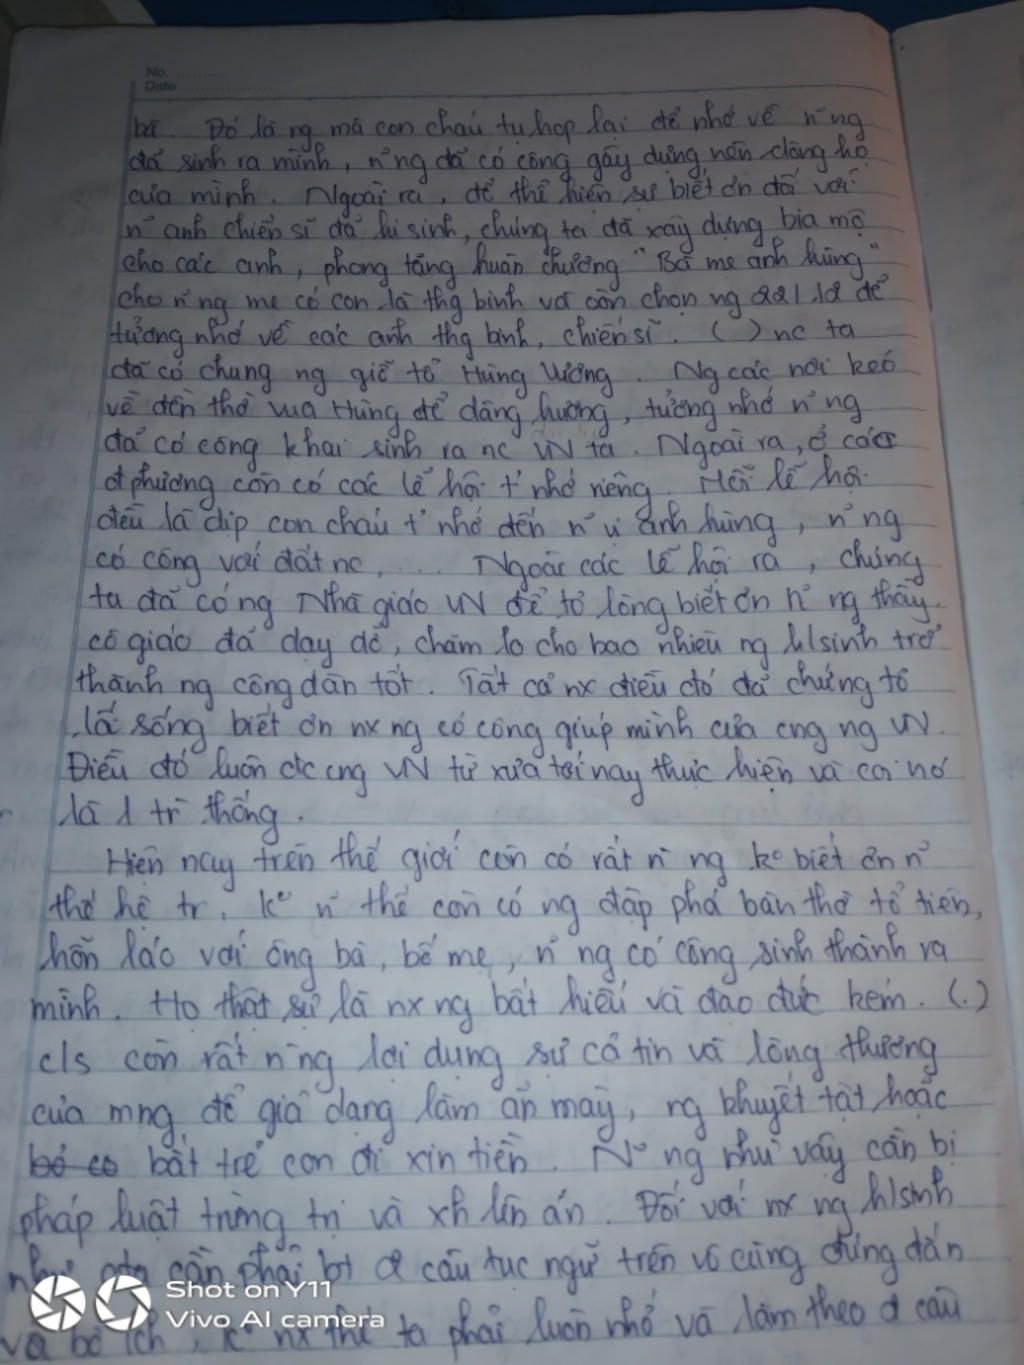 No.
Date
bà. Đó là ng mà con cháu tụ họp lại để nhớ về n~ng
đã sinh ra mình, n~ng đã có công gây dựng nên dòng họ
của mình. Ngoài ra, để thể hiện sự biết ơn đối với
n~ anh chiến sĩ đã hi sinh, chúng ta đã xây dựng bia mộ
cho các anh, phong tặng huân chương "Bà mẹ anh hùng"
cho n~ng mẹ có con là thg binh và còn chọn ng 22/12 để
tưởng nhớ về các anh thg binh, chiến sĩ. ( ) nc ta
đã có chung ng giỗ tổ Hùng Vương. Ng các nơi kéo
về đền thờ vua Hùng để dâng hương, tưởng nhớ n~ng
đã có công khai sinh ra nc VN ta. Ngoài ra, ở các
đphương còn có các lễ hội t' nhớ riêng. Mỗi lễ hội
đều là dịp con cháu t' nhớ đến n~ vị anh hùng, n~ng
có công với đất nc, ... Ngoài các lễ hội ra, chúng
ta đã có ng Nhà giáo VN để tỏ lòng biết ơn n~ ng thầy
cô giáo đã dạy dỗ, chăm lo cho bao nhiêu ng h/sinh trở
thành ng công dân tốt. Tất cả nx điều đó đã chứng tỏ
lối sống biết ơn nx ng có công giúp mình của cng ng VN.
Điều đó luôn đc cng VN từ xưa tới nay thực hiện và coi nó
là 1 tr` thống.
Hiện nay trên thế giới còn có rất n` ng k° biết ơn n~
thế hệ tr, k° n~ thế còn có ng đập phá bàn thờ tổ tiên,
hỗn láo với ông bà, bố mẹ, n~ ng có công sinh thành ra
mình. Họ thật sự là nx ng bất hiếu và đạo đức kém. (.)
c/s còn rất n~ng lợi dụng sự cả tin và lòng thương
của mng để giả dạng làm ăn mày, ng khuyết tật hoặc
bắt trẻ con đi xin tiền. N~ ng như vậy cần bị
pháp luật trừng trị và xh lên án. Đối với nx ng h/sinh
như cta cần phải bt đ câu tục ngữ trên vô cùng đúng đắn
và bổ ích, k° nx thế ta phải luôn nhớ và làm theo đ câu
Shot on Y11
Vivo AI camera